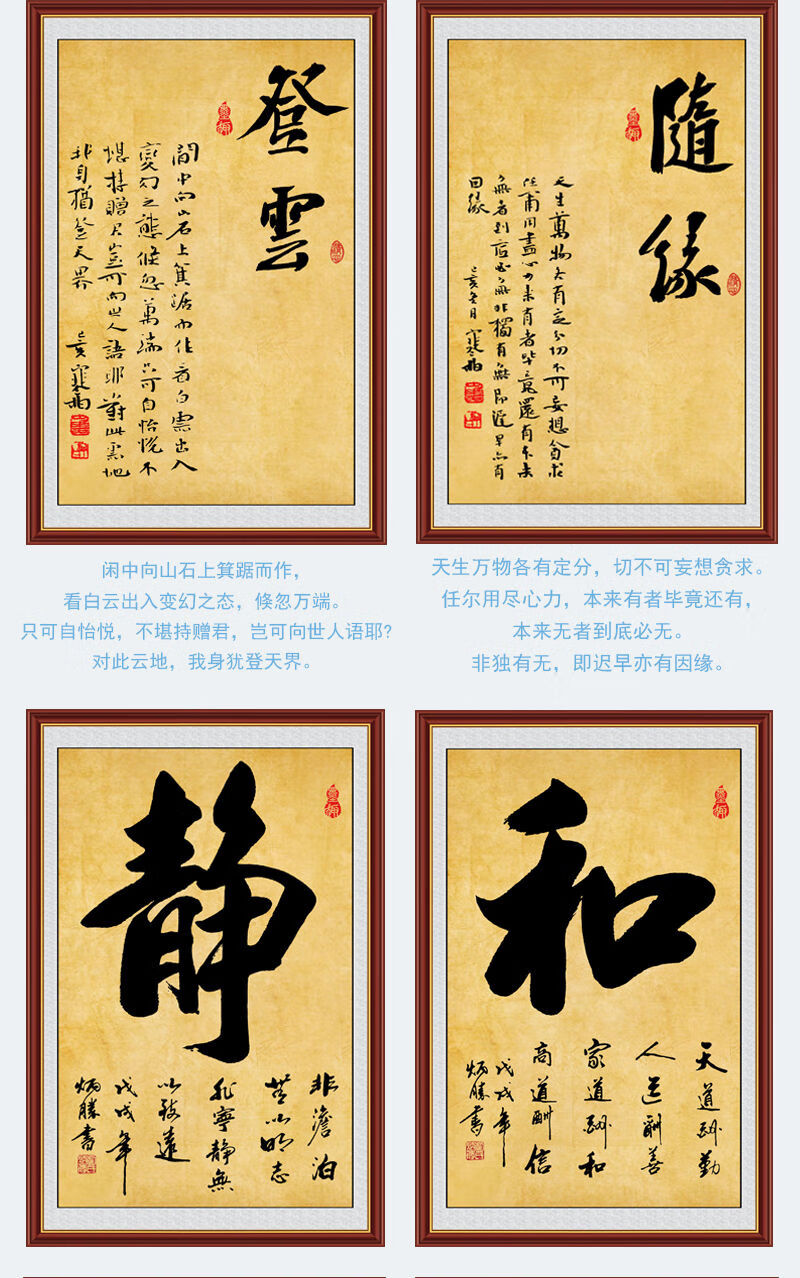 登雲
閒中向山石上箕踞而作看白雲出入
變幻之態倏忽萬端只可自怡悅不
堪持贈君豈可向世人語耶對此雲地
我身猶登天界
己亥
隨緣
天生萬物各有定分切不可妄想貪求
任爾用盡心力本來有者畢竟還有本來
無者到底必無非獨有無即遲早亦有
因緣
己亥冬月
闲中向山石上箕踞而作,
看白云出入变幻之态，倏忽万端。
只可自怡悦，不堪持赠君，岂可向世人语耶?
对此云地，我身犹登天界。
天生万物各有定分，切不可妄想贪求。
任尔用尽心力，本来有者毕竟还有，
本来无者到底必无。
非独有无，即迟早亦有因缘。
静
非澹泊
無以明志
非寧静無
以致遠
戊戌年
炳勝書
和
天道酬勤
人道酬善
家道酬和
高道酬信
戊戌年
炳勝書